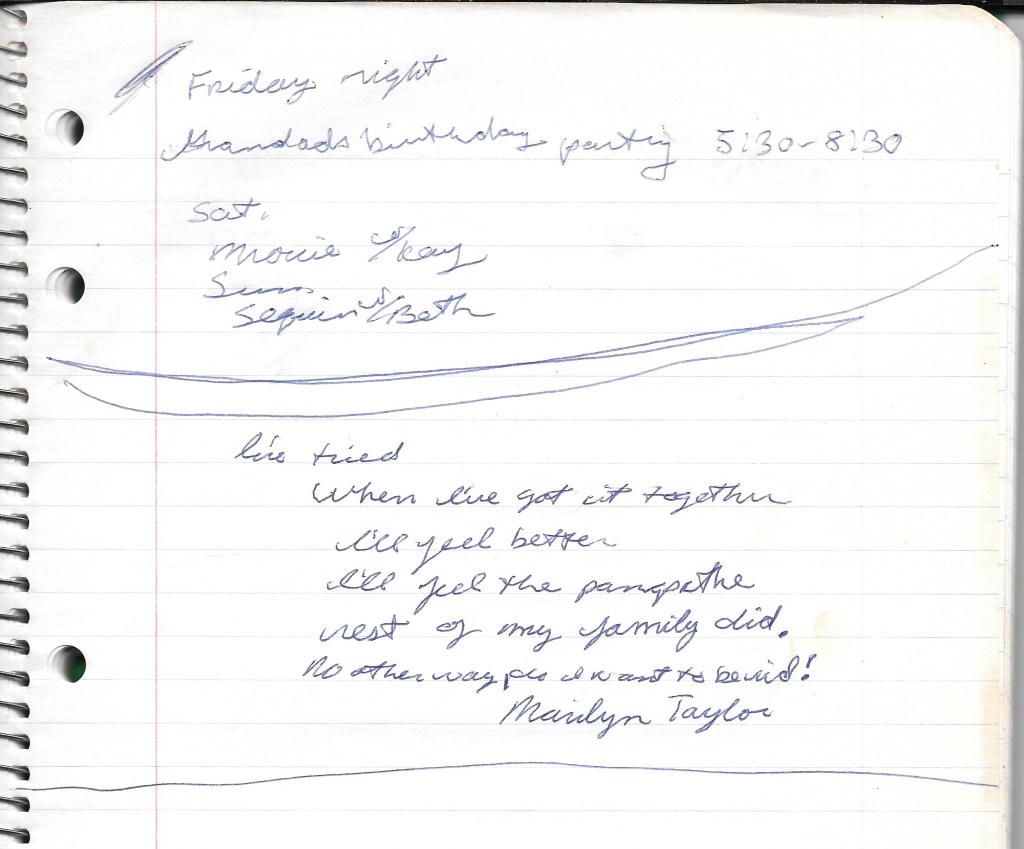 Friday night
Grandads birthday party 5:30-8:30
Sat.
Movie w/Kay
Sun.
Sequin w/Beth
I've tried
When I've got it together
I'll feel better
I'll feel the the
rest of my family did.
No other way I want to be!
Marilyn Taylor